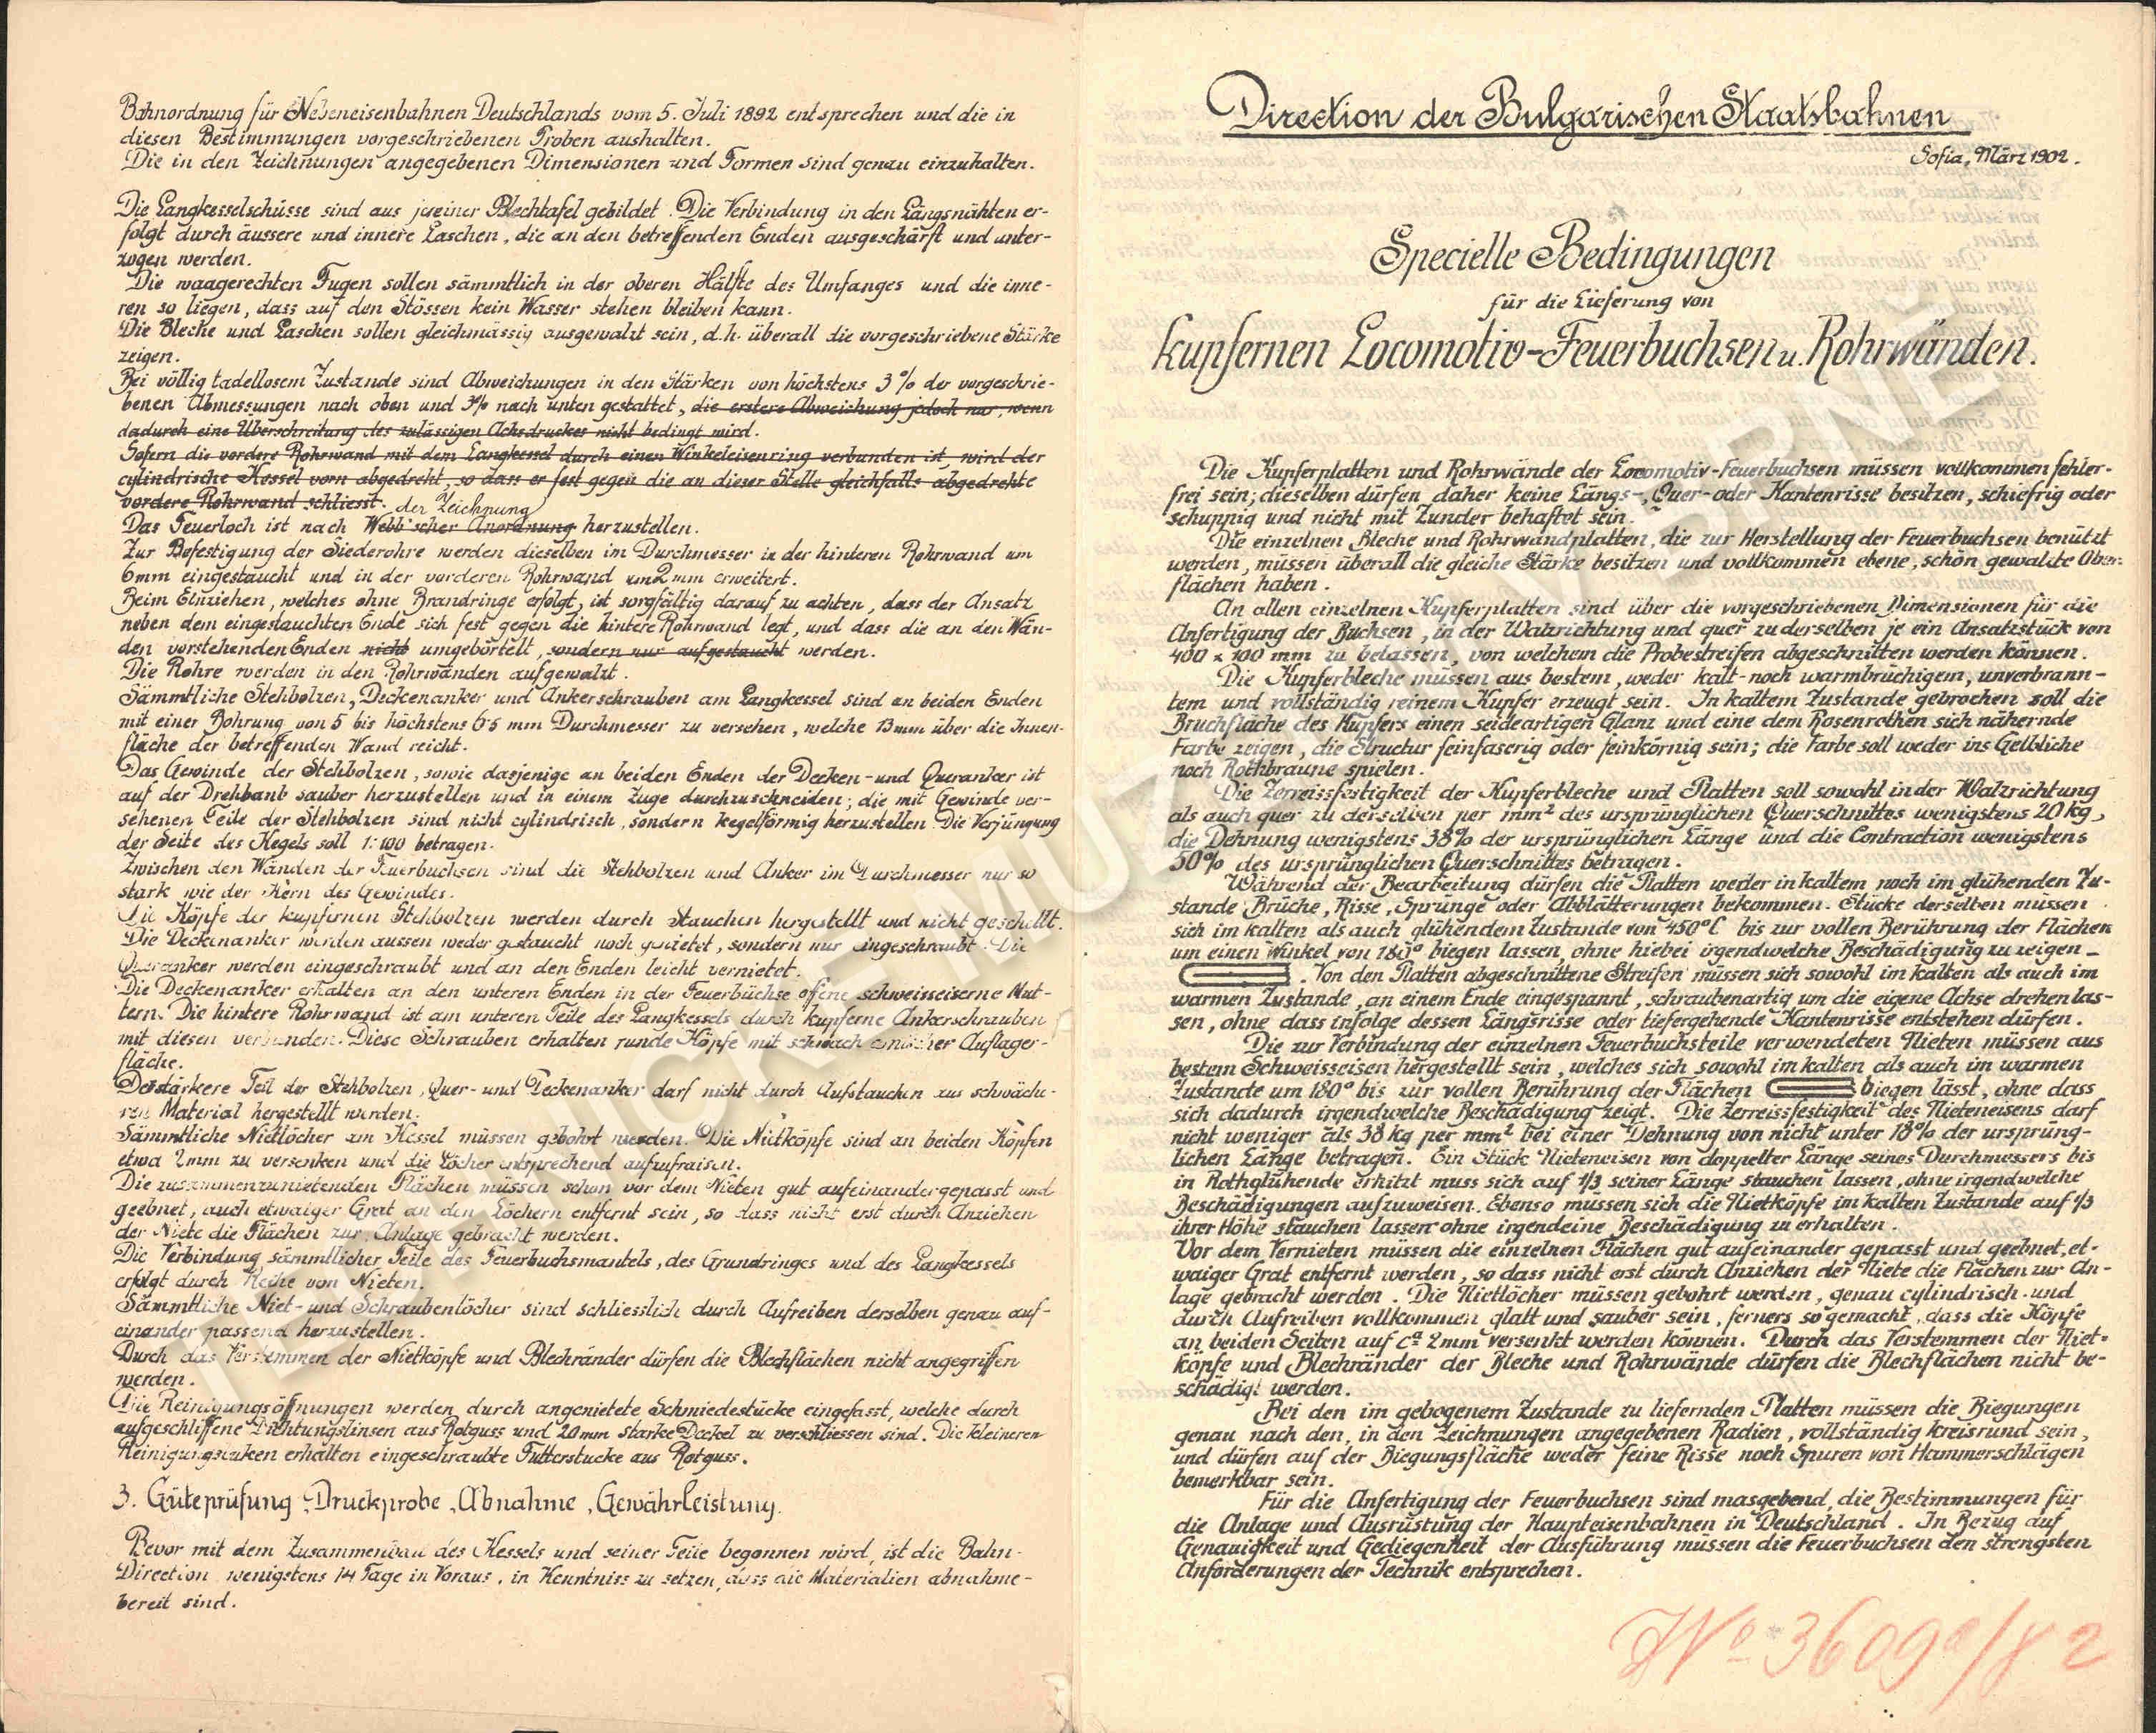 Bahnordnung für Nebeneisenbahnen Deutschlands vom 5. Juli 1892 entsprechen und die in
diesen Bestimmungen vorgeschriebenen Proben aushalten.
Die in den Zeichnungen angegebenen Dimensionen und Formen sind genau einzuhalten.
Die Langkesselschüsse sind aus je einer Blechtafel gebildet. Die Verbindung in den Längsnähten er-
folgt durch äussere und innere Laschen, die an den betreffenden Enden ausgeschärft und unter-
zogen werden.
Die waagerechten Fugen sollen sämmtlich in der oberen Hälfte des Umfanges und die inne-
ren so liegen, dass auf den Stössen kein Wasser stehen bleiben kann.
Die Bleche und Laschen sollen gleichmässig ausgewalzt sein, d.h. überall die vorgeschriebene Stärke
zeigen.
Bei völlig tadellosem Zustande sind Abweichungen in den Stärken von höchstens 3% der vorgeschrie-
benen Abmessungen nach oben und 3% nach unten gestattet, die erstere Abweichung jedoch nur, wenn
dadurch eine Überschreitung des zulässigen Achsdruckes nicht bedingt wird.
Sofern die vordere Rohrwand mit dem Langkessel durch einen Winkeleisenring verbunden ist, wird der
cylindrische Kessel vorn abgedreht, so dass er fest gegen die an dieser Stelle gleichfalls abgedrehte
vordere Rohrwand schliesst. der Zeichnung
Das Feuerloch ist nach Webb'scher Anordnung herzustellen.
Zur Befestigung der Siederohre werden dieselben im Durchmesser in der hinteren Rohrwand um
6mm eingestaucht und in der vorderen Rohrwand um 2 mm erweitert.
Beim Einziehen, welches ohne Brandringe erfolgt, ist sorgfältig darauf zu achten, dass der Ansatz
neben dem eingestauchten Ende sich fest gegen die hintere Rohrwand legt, und dass die an den Wän-
den vorstehenden Enden nicht umgebörtelt, sondern nur aufgestaucht werden.
Die Rohre werden in den Rohrwänden aufgewalzt.
Sämmtliche Stehbolzen, Deckenanker und Ankerschrauben am Langkessel sind an beiden Enden
mit einer Bohrung von 5 bis höchstens 6·5 mm Durchmesser zu versehen, welche 13 mm über die Innen-
fläche der betreffenden Wand reicht.
Das Gewinde der Stehbolzen, sowie dasjenige an beiden Enden der Decken- und Queranker ist
auf der Drehbank sauber herzustellen und in einem Zuge durchzuschneiden; die mit Gewinde ver-
sehenen Teile der Stehbolzen sind nicht cylindrisch, sondern kegelförmig herzustellen. Die Verjüngung
der Seite des Kegels soll 1:100 betragen.
Zwischen den Wänden der Feuerbuchsen sind die Stehbolzen und Anker im Durchmesser nur so
stark wie der Kern des Gewindes.
Die Köpfe der kupfernen Stehbolzen werden durch Stauchen hergestellt und nicht geschellt.
Die Deckenanker werden aussen weder gestaucht noch genietet, sondern nur eingeschraubt. Die
Queranker werden eingeschraubt und an den Enden leicht vernietet.
Die Deckenanker erhalten an den unteren Enden in der Feuerbüchse offene schweisseiserne Mut-
tern. Die hintere Rohrwand ist am unteren Teile des Langkessels durch kupferne Ankerschrauben
mit diesen verbunden. Diese Schrauben erhalten runde Köpfe mit schwach conischer Auflager-
fläche.
Der stärkere Teil der Stehbolzen, Quer- und Deckenanker darf nicht durch Aufstauchen aus schwäche-
ren Material hergestellt werden.
Sämmtliche Nietlöcher am Kessel müssen gebohrt werden. Die Nietköpfe sind an beiden Köpfen
etwa 2mm zu versenken und die Löcher entsprechend aufzufraisen.
Die zusammenzunietenden Flächen müssen schon vor dem Nieten gut aufeinandergepasst und
geebnet, auch etwaiger Grat an den Löchern entfernt sein, so dass nicht erst durch Anziehen
der Niete die Flächen zur Anlage gebracht werden.
Die Verbindung sämmtlicher Teile des Feuerbuchsmantels, des Grundringes und des Langkessels
erfolgt durch Reihe von Nieten.
Sämmtliche Niet- und Schraubenlöcher sind schliesslich durch Aufreiben derselben genau auf-
einander passend herzustellen.
Durch das Verstemmen der Nietköpfe und Blechränder dürfen die Blechflächen nicht angegriffen
werden.
Die Reinigungsöffnungen werden durch angenietete Schmiedestücke eingefasst, welche durch
aufgeschliffene Dichtungslinsen aus Rotguss und 20 mm starke Deckel zu verschliessen sind. Die kleineren
Reinigungsluken erhalten eingeschraubte Futterstucke aus Rotguss.
3. Güteprüfung, Druckprobe, Abnahme, Gewährleistung.
Bevor mit dem Zusammenbau des Kessels und seiner Teile begonnen wird, ist die Bahn-
Direction wenigstens 14 Tage in Voraus, in Kenntniss zu setzen, dass die Materialien abnahme-
bereit sind.
Direction der Bulgarischen Staatsbahnen
Sofia, März 1902.
Specielle Bedingungen
für die Lieferung von
kupfernen Locomotiv-Feuerbuchsen u. Rohrwänden.
Die Kupferplatten und Rohrwände der Locomotiv-Feuerbuchsen müssen vollkommen fehler-
frei sein; dieselben dürfen daher keine Längs-, Quer- oder Kantenrisse besitzen, schiefrig oder
schuppig und nicht mit Zunder behaftet sein.
Die einzelnen Bleche und Rohrwandplatten, die zur Herstellung der Feuerbuchsen benützt
werden, müssen überall die gleiche Stärke besitzen und vollkommen ebene, schön gewalzte Ober-
flächen haben.
An allen einzelnen Kupferplatten sind über die vorgeschriebenen Dimensionen für die
Anfertigung der Buchsen, in der Walzrichtung und quer zu derselben je ein Ansatzstück von
400 x 100 mm zu belassen, von welchem die Probestreifen abgeschnitten werden können.
Die Kupferbleche müssen aus bestem, weder kalt- noch warmbrüchigem, unverbrann-
tem und vollständig reinem Kupfer erzeugt sein. In kaltem Zustande gebrochen soll die
Bruchfläche des Kupfers einen seideartigen Glanz und eine dem Rosenrothen sich nähernde
Farbe zeigen, die Structur feinfaserig oder feinkörnig sein; die Farbe soll weder ins Gelbliche
noch Rothbraune spielen.
Die Zerreissfestigkeit der Kupferbleche und Platten soll sowohl in der Walzrichtung
als auch quer zu derselben per mm² des ursprünglichen Querschnittes wenigstens 20 kg,
die Dehnung wenigstens 38% der ursprünglichen Länge und die Contraction wenigstens
50% des ursprünglichen Querschnittes betragen.
Während der Bearbeitung dürfen die Platten weder in kaltem noch im glühenden Zu-
stande Brüche, Risse, Sprünge oder Abblätterungen bekommen. Stücke derselben müssen
sich im kalten als auch glühendem Zustande von 450°C bis zur vollen Berührung der Flächen
um einen Winkel von 180° biegen lassen, ohne hiebei irgendwelche Beschädigung zu zeigen –
. Von den Platten abgeschnittene Streifen müssen sich sowohl im kalten als auch im
warmen Zustande, an einem Ende eingespannt, schraubenartig um die eigene Achse drehen las-
sen, ohne dass infolge dessen Längsrisse oder tiefergehende Kantenrisse entstehen dürfen.
Die zur Verbindung der einzelnen Feuerbuchsteile verwendeten Nieten müssen aus
bestem Schweisseisen hergestellt sein, welches sich sowohl im kalten als auch im warmen
Zustande um 180° bis zur vollen Berührung der Flächen biegen lässt, ohne dass
sich dadurch irgendwelche Beschädigung zeigt. Die Zerreissfestigkeit des Nieteneisens darf
nicht weniger als 38 kg per mm² bei einer Dehnung von nicht unter 18% der ursprüng-
lichen Länge betragen. Ein Stück Nieteneisen von doppelter Länge seines Durchmessers bis
in Rothglühende erhitzt muss sich auf 1/3 seiner Länge stauchen lassen, ohne irgendwelche
Beschädigungen aufzuweisen. Ebenso müssen sich die Nietköpfe im kalten Zustande auf 1/3
ihrer Höhe stauchen lassen ohne irgendeine Beschädigung zu erhalten.
Vor dem Vernieten müssen die einzelnen Flächen gut aufeinander gepasst und geebnet, et-
waiger Grat entfernt werden, so dass nicht erst durch Anziehen der Niete die Flächen zur An-
lage gebracht werden. Die Nietlöcher müssen gebohrt werden, genau cylindrisch und
durch Aufreiben vollkommen glatt und sauber sein, ferners so gemacht, dass die Köpfe
an beiden Seiten auf ca 2mm versenkt werden können. Durch das Verstemmen der Niet-
köpfe und Blechränder der Bleche und Rohrwände dürfen die Blechflächen nicht be-
schädigt werden.
Bei den im gebogenem Zustande zu liefernden Platten müssen die Biegungen
genau nach den, in den Zeichnungen angegebenen Radien, vollständig kreisrund sein,
und dürfen auf der Biegungsfläche weder feine Risse noch Spuren von Hammerschlägen
bemerkbar sein.
Für die Anfertigung der Feuerbuchsen sind masgebend, die Bestimmungen für
die Anlage und Ausrüstung der Haupteisenbahnen in Deutschland. In Bezug auf
Genauigkeit und Gediegenheit der Ausführung müssen die Feuerbuchsen den strengsten
Anforderungen der Technik entsprechen.
No 3609a/82
TECHNICKÉ MUZEUM V BRNĚ